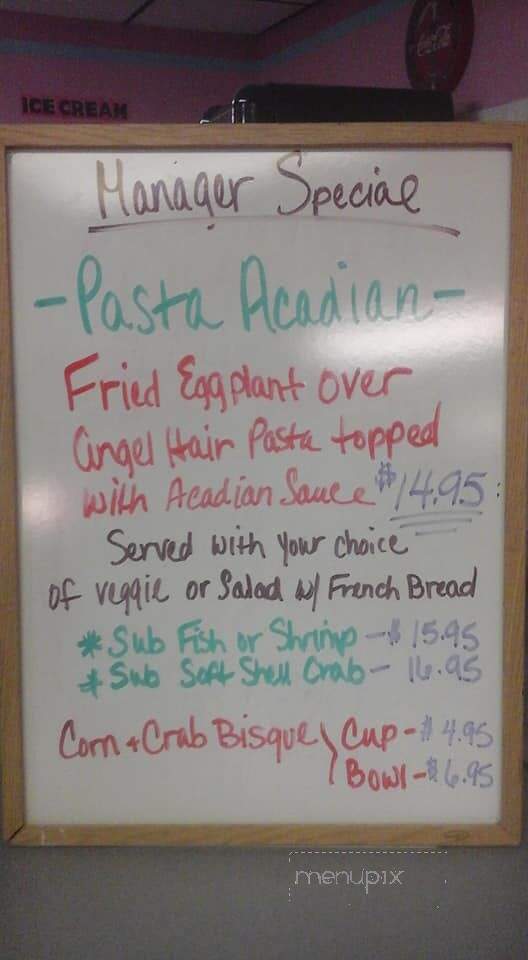 Coca-Cola
ICE CREAM
Manager Special
- Pasta Acadian -
Fried Eggplant over
angel Hair Pasta topped
with Acadian Sauce $14.95
Served with your choice
of veggie or Salad w/ French Bread
* Sub Fish or Shrimp - $ 15.95
* Sub Soft Shell Crab - 16.95
Corn + Crab Bisque } Cup - $ 4.95
Bowl - $ 6.95
menupix